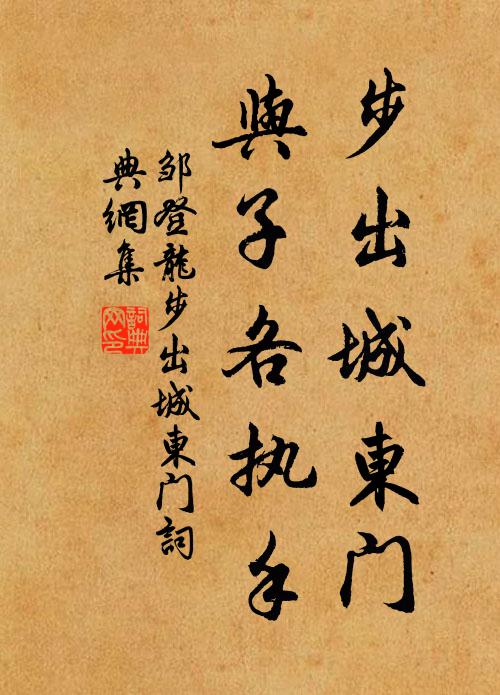 步出城東门
與子各执手
邹登龍步出城東门詞
典網集
詞典網印